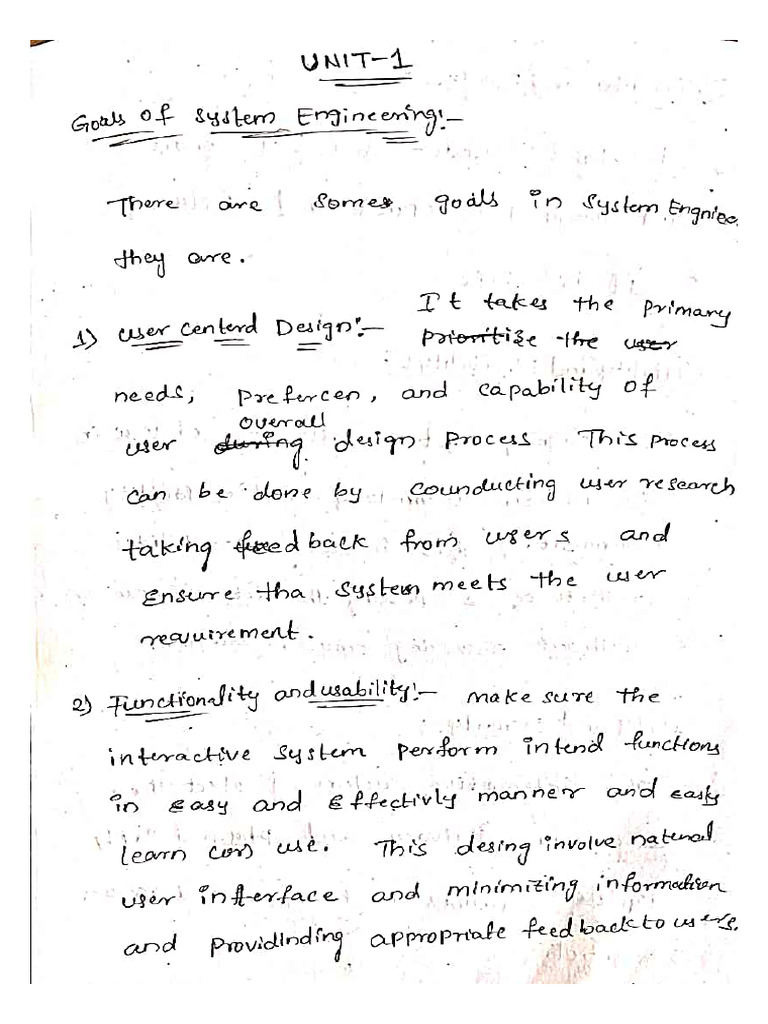 UNIT-1
Goals of System Engineering:-
There are some goals in System Engniee
they are.
1) User Centerd Design:- It takes the primary
Prioritize the user
needs, Prefercen, and capability of
overall
user during design Process. This process
can be done by counducting user research
taking feedback from users and
Ensure tha system meets the user
requirement.
2) Functionality and usability:- make sure the
interactive system perform intend functions
in easy and effectivly manner and easly
learn (or) use. This desing involve natural
user interface and minimizing information
and providinding appropriate feedback to users.